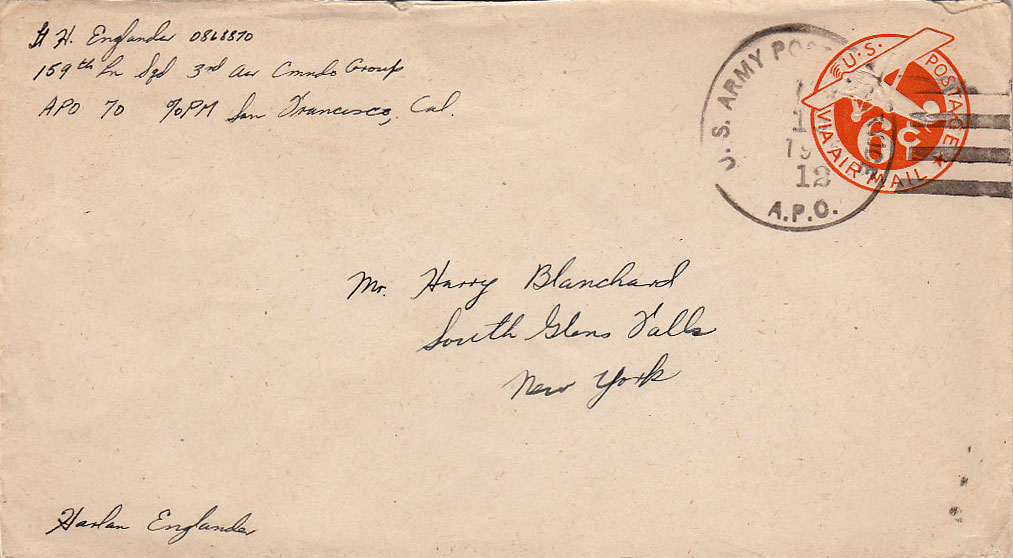 Lt H. Englander 0868870
159th Ln Sqd 3rd Air Cmndo Group
APO 70 %PM San Francisco, Cal.
U.S. ARMY POST
19
12
A.P.O.
U.S. POSTAGE
6¢
VIA AIR MAIL
Mr. Harry Blanchard
South Glens Falls
New York
Harlan Englander